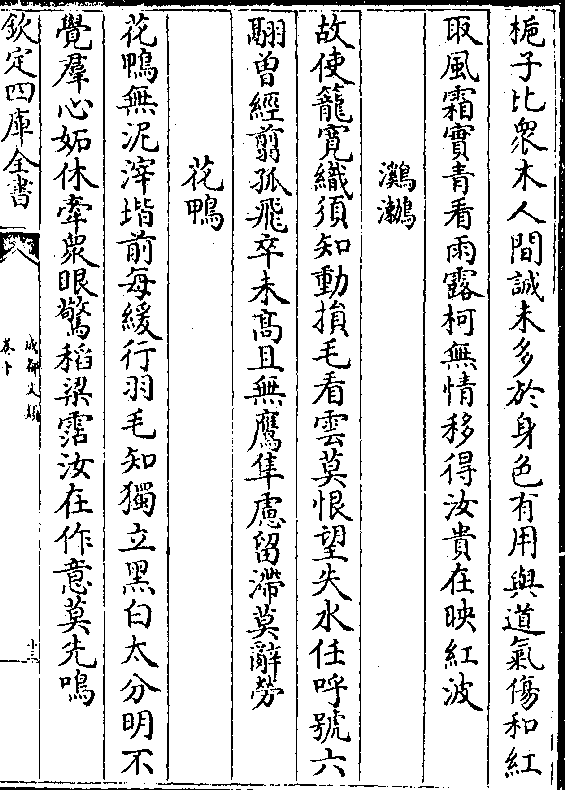 梔子比衆木人間誠未多於身色有用與道氣傷和紅
取風霜實青看雨露柯無情移得汝貴在映紅波
鸂鶒
故使籠寛織須知動損毛看雲莫恨望失水任呼號六
翮曾經剪孤飛卒未髙且無鷹隼慮留滯莫辭勞
花鴨
花鴨無泥滓堦前每緩行羽毛知獨立黒白太分明不
覺羣心妬休牽衆眼驚稻粱霑汝在作意莫先鳴
欽定四庫全書
成都文類
卷十
十三